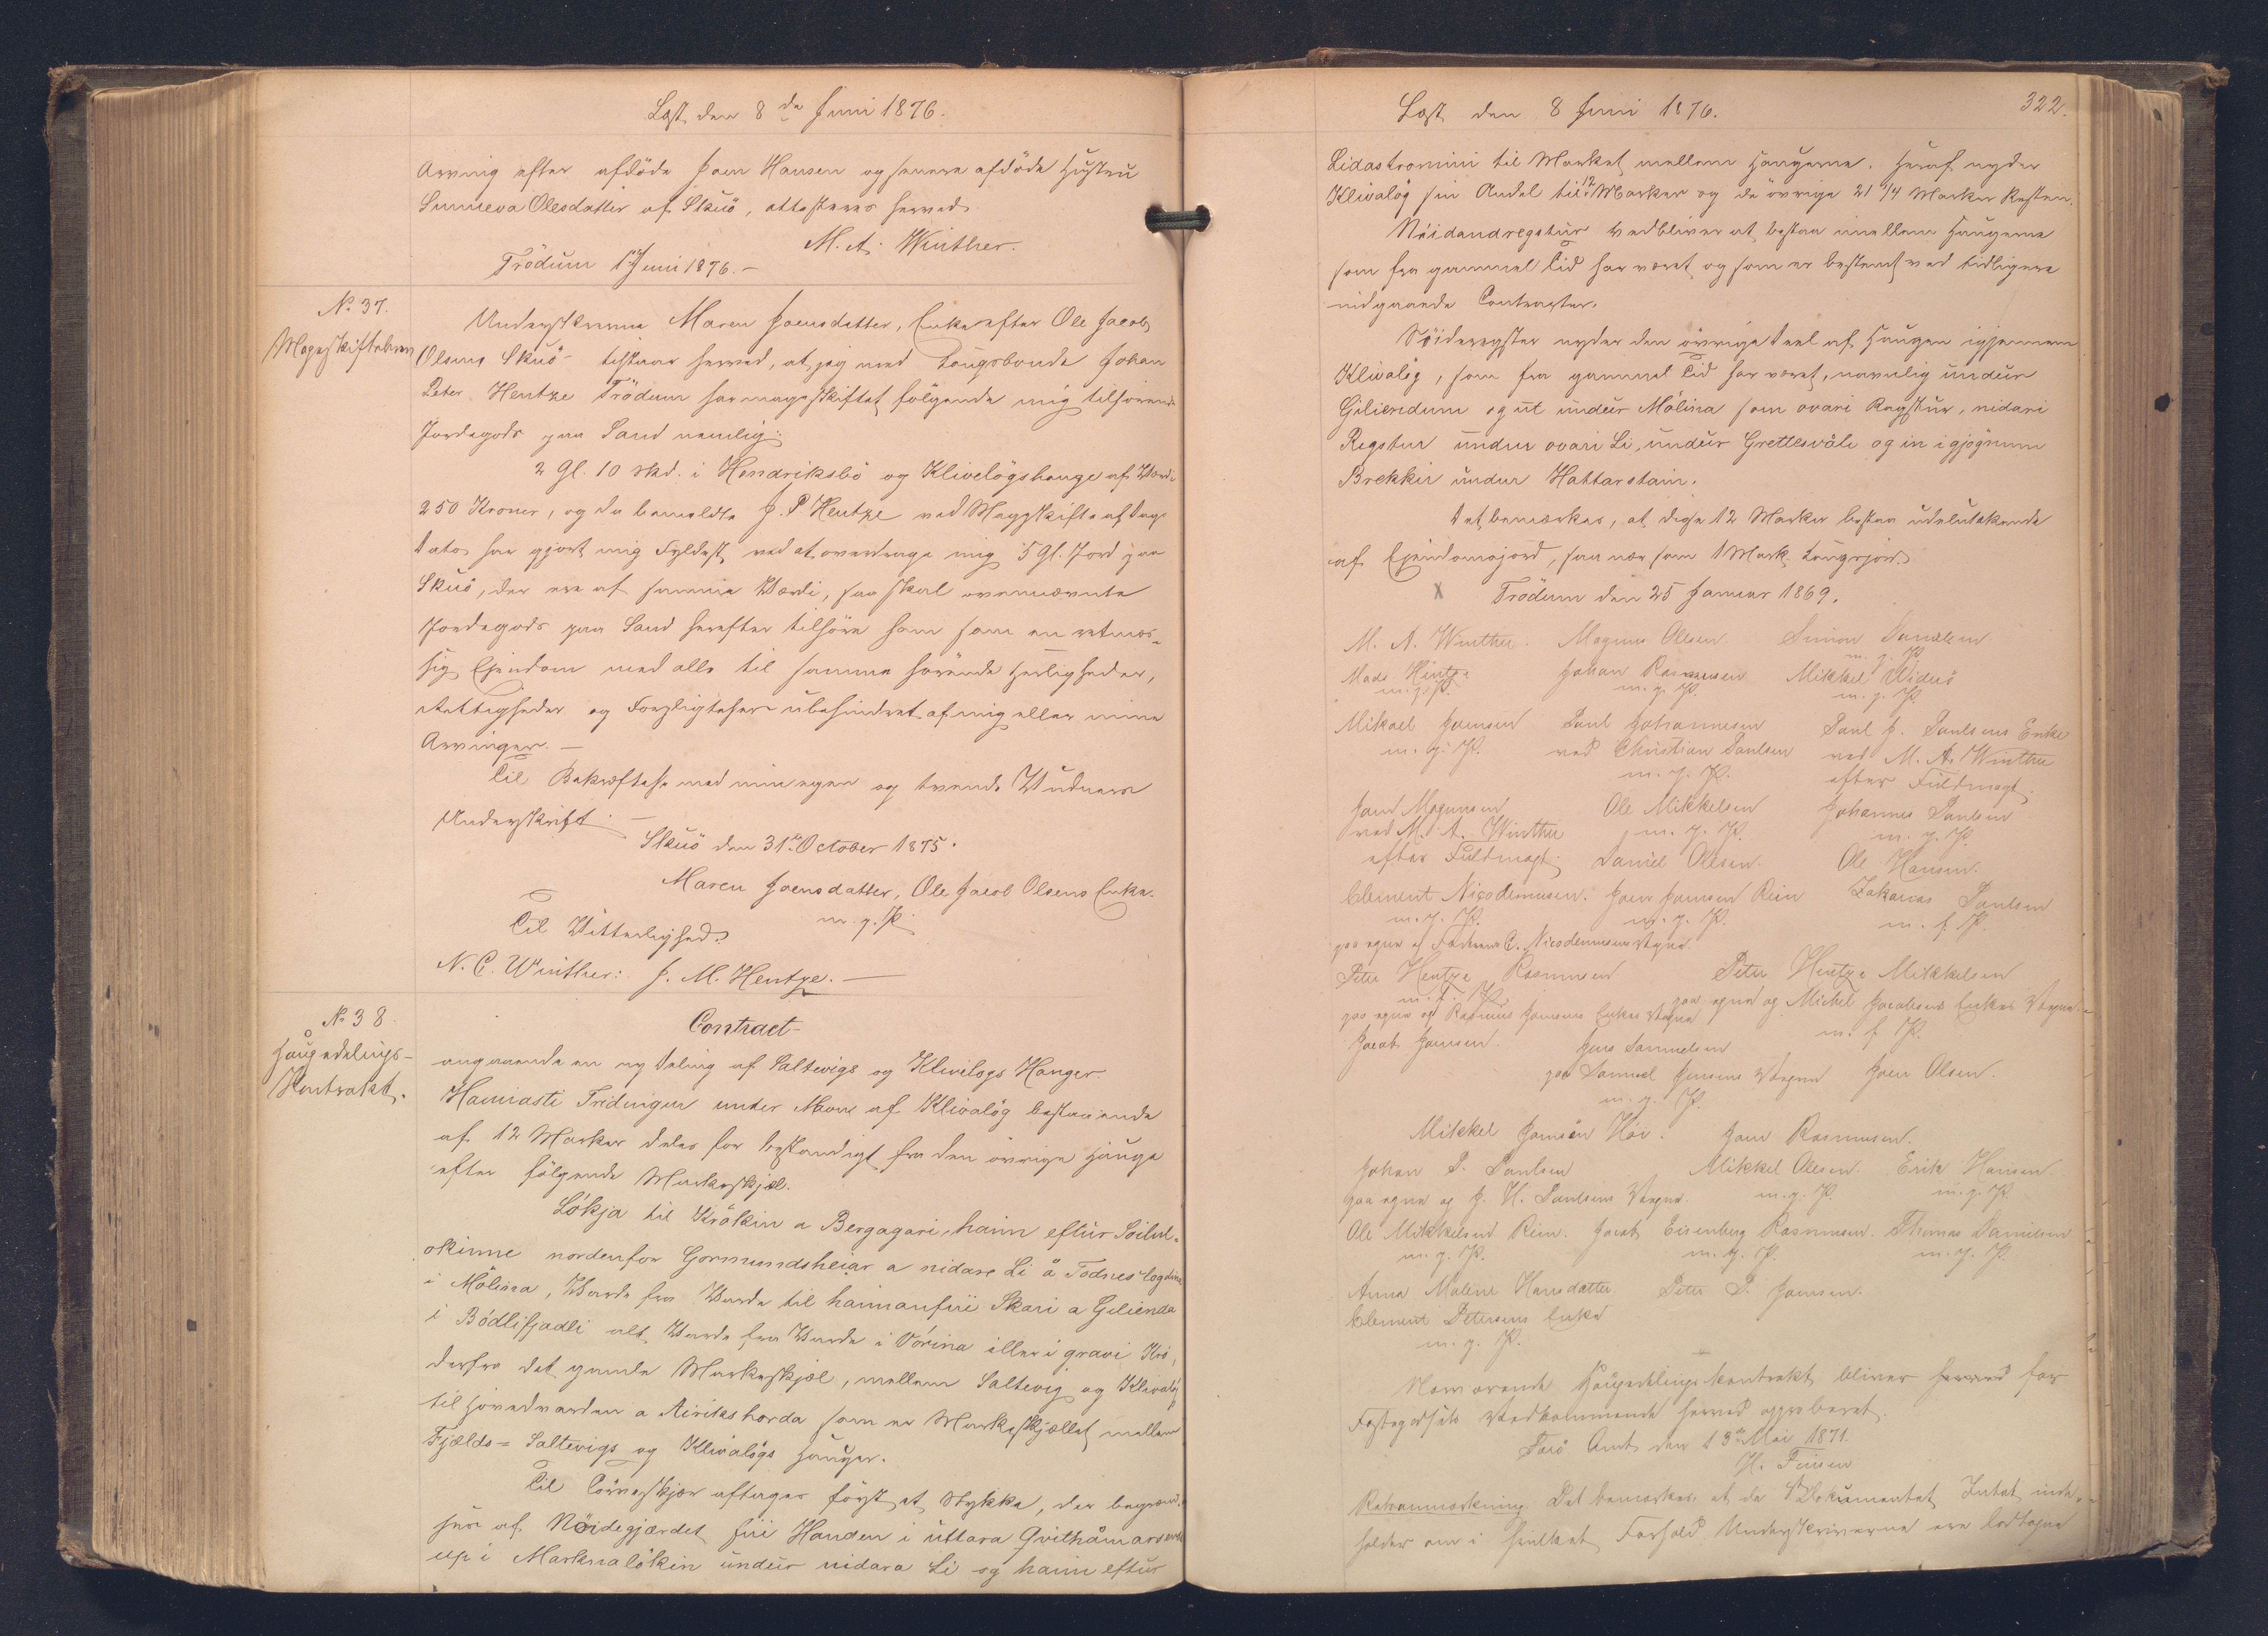 Læst den 8de Juni 1876.
Arving efter afdöde Joen Hansen og senere afdöde Hustru
Sunneva Olesdatter af Skuö, attesteres herved.
M. A. Winther.
Trödum 1 Juni 1876.-
No 37.
Mageskiftebrev
Underskrevne Maren Joensdatter, Enke efter Ole Jacob
Olsens Skuö - tilstaar herved, at jeg med Kongsbonde Johan
Peter Hentze Trödum har mageskiftet fölgende mig tilhörende
Jordegods paa Sand nemlig:
2 Gl. 10 Skd. i Hendriksbö og Klivelögshauge af Værdi
250 Kroner, og da bemeldte J. P. Hentze ved Mageskifte af Dags
Dato har gjort mig Fyldest, ved at overdrage mig 5 Gl. Jord paa
Skuö, der ere af samme Værdi, saa skal ovennævnte
Jordegods paa Sand herefter tilhöre ham som en retmæs-
sig Ejendom med alle til samme hörende Herligheder,
Rettigheder og Forpligtelser ubehindret af mig eller mine
Arvinger. -
Til Bekræftelse med min egen og tvende Vidners
Underskrift. -
Skuö den 31te October 1875.
Maren Joensdatter, Ole Jacob Olsens Enke.
m. g. P.
Til Vitterlighed.
N. C. Winther: J. M. Hentze. -
No 38.
Haugedelings-
Kontrakt.
Contract-
angaaende en ny Deling af Saltevigs og Klivilogs Hauger.
Hamiasti Tridingur under Mære af Klivalög bestaaende
af 12 Marker deles for bestandigt fra den övrige Hauge
efter fölgende Markeskjel.
Lókja til Krökin a Bergagari, haim eftur Soilul-
okinne nordenfor Gormundsheiar a nidare Li å Todnes logdine
i Mölina, Varde fra Varde til haimanfirir Skari a Gilienda
i Bödlifjadli alt Varde fra Varde i Vörina iller i gravi Kró,
derfra det gamle Markeskjel, mellem Saltevig og Klivalög
til Hovedvarden a Airikshorda som er Markeskjellet mellem
Fjælds- Saltevigs og Klivalögs Hauger.
Til Törveskjær aftages först et Stykke, der begrænd-
ses af Nöidegjærdet firi Handen i úttara Qvithåmar
up i Marknalökin undur nidara Li og haim eftur
Læst den 8 Juni 1876.
322.
Lidastromini til Market mellem Haugerne. Heraf nyder
Klivalög sin Andel til 12 Marker og de övrige 21 1/4 Marker Resten.
Nöidandregstur vedbliver at bestaa imellem Haugerne
som fra gammel Tid har været og som er bestemt ved tidligere
indgaaede Contracter.
Nöideregster nyder den övrige Deel af Haugen igjennem
Klivalög, som fra gammel Tid har været, navnlig undur
Giliendum og út undur Mölina som ovari Regstur, nidari
Regstur undur ovari Li, undur Grettesvöle og in igjögnum
Brekkir undur Hattarstain.
Det bemærkes, at disse 12 Marker bestaa udelukkende
af Ejendomsjord, saa nær som 1 Mark Kongsjord.
X Trödum den 25 Januar 1869.
M. A. Winther. Magnus Olesen. Simon Danielsen
m. g. P.
Mads Hentze Johan Rasmussen Mikkel Widerö
m. g. P. m. g. P. m. g. P.
Mikael Joensen Poul Johannesen Poul J. Poulsens Enke
m. g. P. ved Christian Poulsen ved M. A. Winther
m. g. P. efter Fuldmagt.
Joen Magnussen Ole Mikkelsen Johannes Poulsen
ved M. A. Winther m. g. P. m. g. P.
efter Fuldmagt. Daniel Olesen. Ole Hansen.
Clement Nicodemussen. Joen Joensen Rein Zakarias Poulsen
m. g. P. m. g. P. m. f. P.
paa egne og Faderens C. Nicodemussens Vegne.
Peter Hentze Rasmussen Peter Hentze Mikkelsen
m. f. P. paa egne og Michel Jacobsens Enkes Vegne.
paa egne og Rasmus Joensens Enkes Vegne m. f. P.
Jacob Joensen. Jens Samuelsen
paa Samuel Jensens Vegne Joen Olsen.
m. g. P.
Mikkel Joensen Höi. Joen Rasmussen.
Johan P. Poulsen Mikkel Olesen. Erik Hansen
paa egne og J. H. Poulsens Vegne. m. g. P. m. g. P.
Ole Mikkelsen Rein. Jacob Eisenberg Rasmussen. Thomas Danielsen
m. g. P. m. g. P. m. g. P.
Anna Malene Hansdatter Peter P. Joensen.
Clement Petersens Enke
m. g. P.
Nærværende Haugedelings Kontrakt bliver herved for
Fæstegodsets Vedkommende herved approberet.
Færö Amt den 13de Mai 1871.
H. Finsen
Retsanmærkning. Det bemærkes at da Dokumentet Intet inde-
holder om i hvilket Forhold Underskriverne ere lodtagne